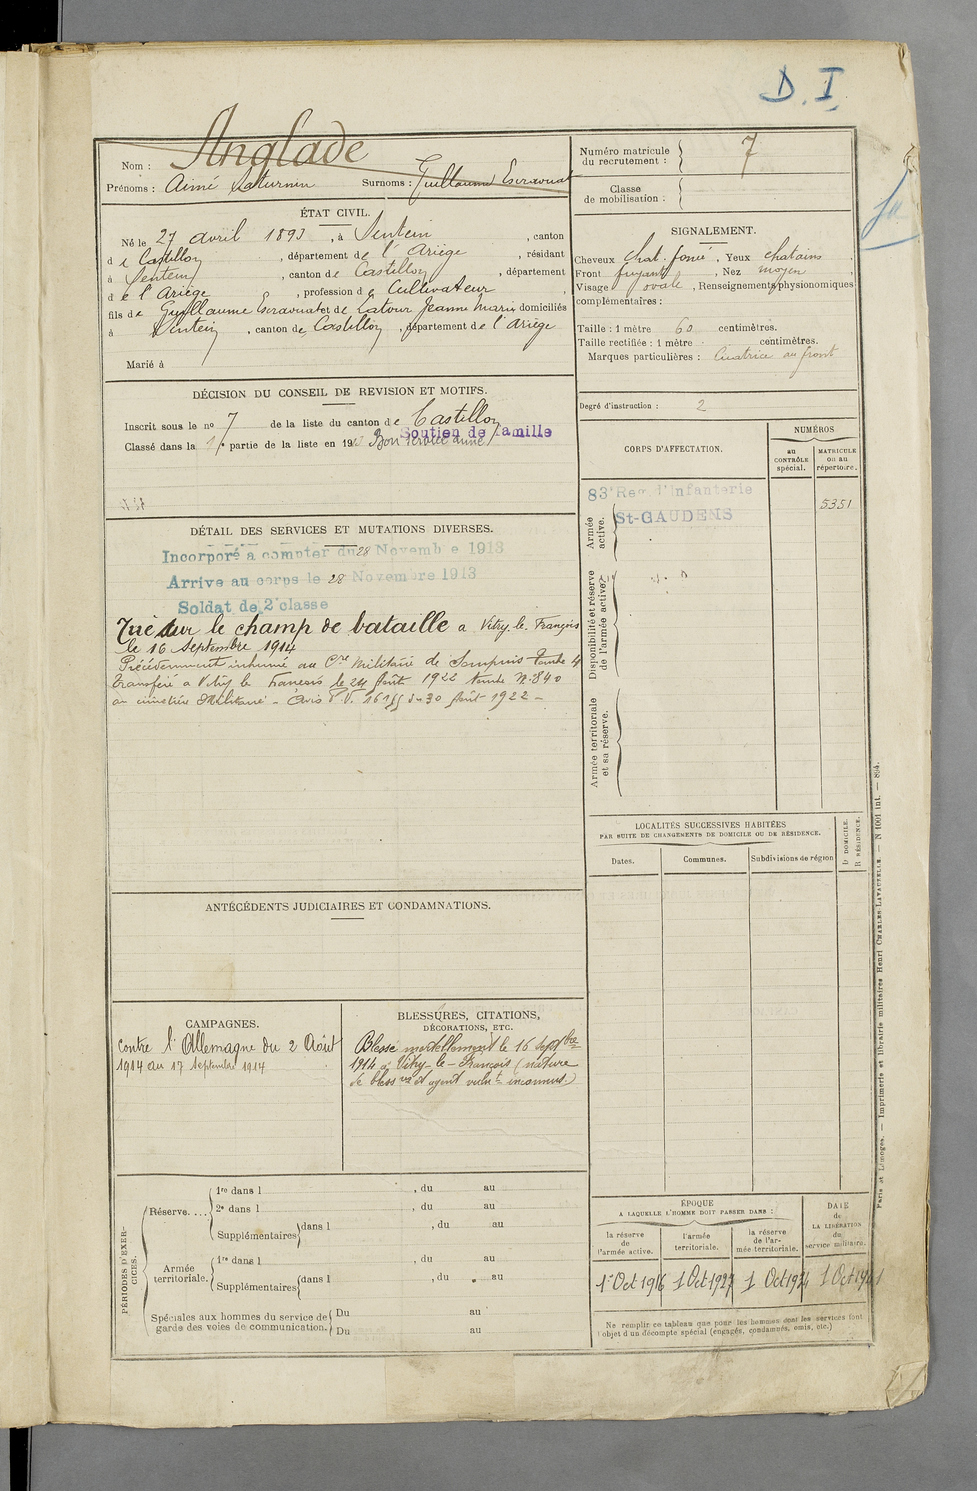 D. I
Nom : Anglade
Prénoms : Aimé Saturnin Surnoms : Guillaume Escaounat
Numéro matricule du recrutement : 7
Classe de mobilisation :
ÉTAT CIVIL.
Né le 27 avril 1893, à Sentein, canton
de Castillon, département de l'Ariège, résidant
à Sentein, canton de Castillon, département
de l'Ariège, profession de Cultivateur
fils de Guillaume Escaounat et de Latour Jeanne Marie domiciliés
à Sentein, canton de Castillon, département de l'Ariège
Marié à
SIGNALEMENT.
Cheveux chat. foncé, Yeux chatains
Front fuyant, Nez moyen
Visage ovale, Renseignements physionomiques
complémentaires :
Taille : 1 mètre 60 centimètres.
Taille rectifiée : 1 mètre centimètres.
Marques particulières : Cicatrice au front
Degré d'instruction : 2
DÉCISION DU CONSEIL DE REVISION ET MOTIFS.
Inscrit sous le no 7 de la liste du canton de Castillon
Classé dans la 1e partie de la liste en 191 Bon service armé
Soutien de famille
CORPS D'AFFECTATION.
NUMÉROS
au CONTRÔLE spécial.
MATRICULE ou au répertoire.
Armée active.
83e Reg d'Infanterie
St-GAUDENS
5351
Disponibilité et réserve de l'armée active.
Armée territoriale et sa réserve.
DÉTAIL DES SERVICES ET MUTATIONS DIVERSES.
Incorporé à compter du 28 Novembre 1913
Arrivé au corps le 28 Novembre 1913
Soldat de 2e classe
Tué sur le champ de bataille à Vitry-le-François
le 16 septembre 1914
Précédemment inhumé au Cre Militaire de Sompuis tombe 4
transféré à Vitry le François le 24 Août 1922 tombe N° 840
au cimetière Militaire - Avis P.V. du 30 Août 1922 -
LOCALITÉS SUCCESSIVES HABITÉES
PAR SUITE DE CHANGEMENTS DE DOMICILE OU DE RÉSIDENCE.
Dates.
Communes.
Subdivisions de région
D DOMICILE.
R RÉSIDENCE.
ANTÉCÉDENTS JUDICIAIRES ET CONDAMNATIONS.
CAMPAGNES.
Contre l'Allemagne du 2 Août
1914 au 17 Septembre 1914
BLESSURES, CITATIONS,
DÉCORATIONS, ETC.
Blessé mortellement le 16 septbre
1914 à Vitry-le-François (nature
de blessure et agent vulnt inconnus)
PÉRIODES D'EXERCICES.
Réserve.... 1re dans l , du au
2e dans l , du au
Supplémentaires dans l , du au
Armée territoriale. 1re dans l , du au
Supplémentaires dans l , du au
Spéciales aux hommes du service de garde des voies de communication. Du au
Du au
ÉPOQUE
A LAQUELLE L'HOMME DOIT PASSER DANS :
la réserve de l'armée active.
l'armée territoriale.
la réserve de l'armée territoriale.
DATE de LA LIBÉRATION du service militaire.
1 Oct 1916
1 Oct 1927
1 Oct 1934
1 Oct 1941
Ne remplir ce tableau que pour les hommes dont les services font
l'objet d'un décompte spécial (engagés, condamnés, omis, etc.)
Paris et Limoges. — Imprimerie et librairie militaires Henri CHARLES-LAVAUZELLE. — N 1001 int. — 894.